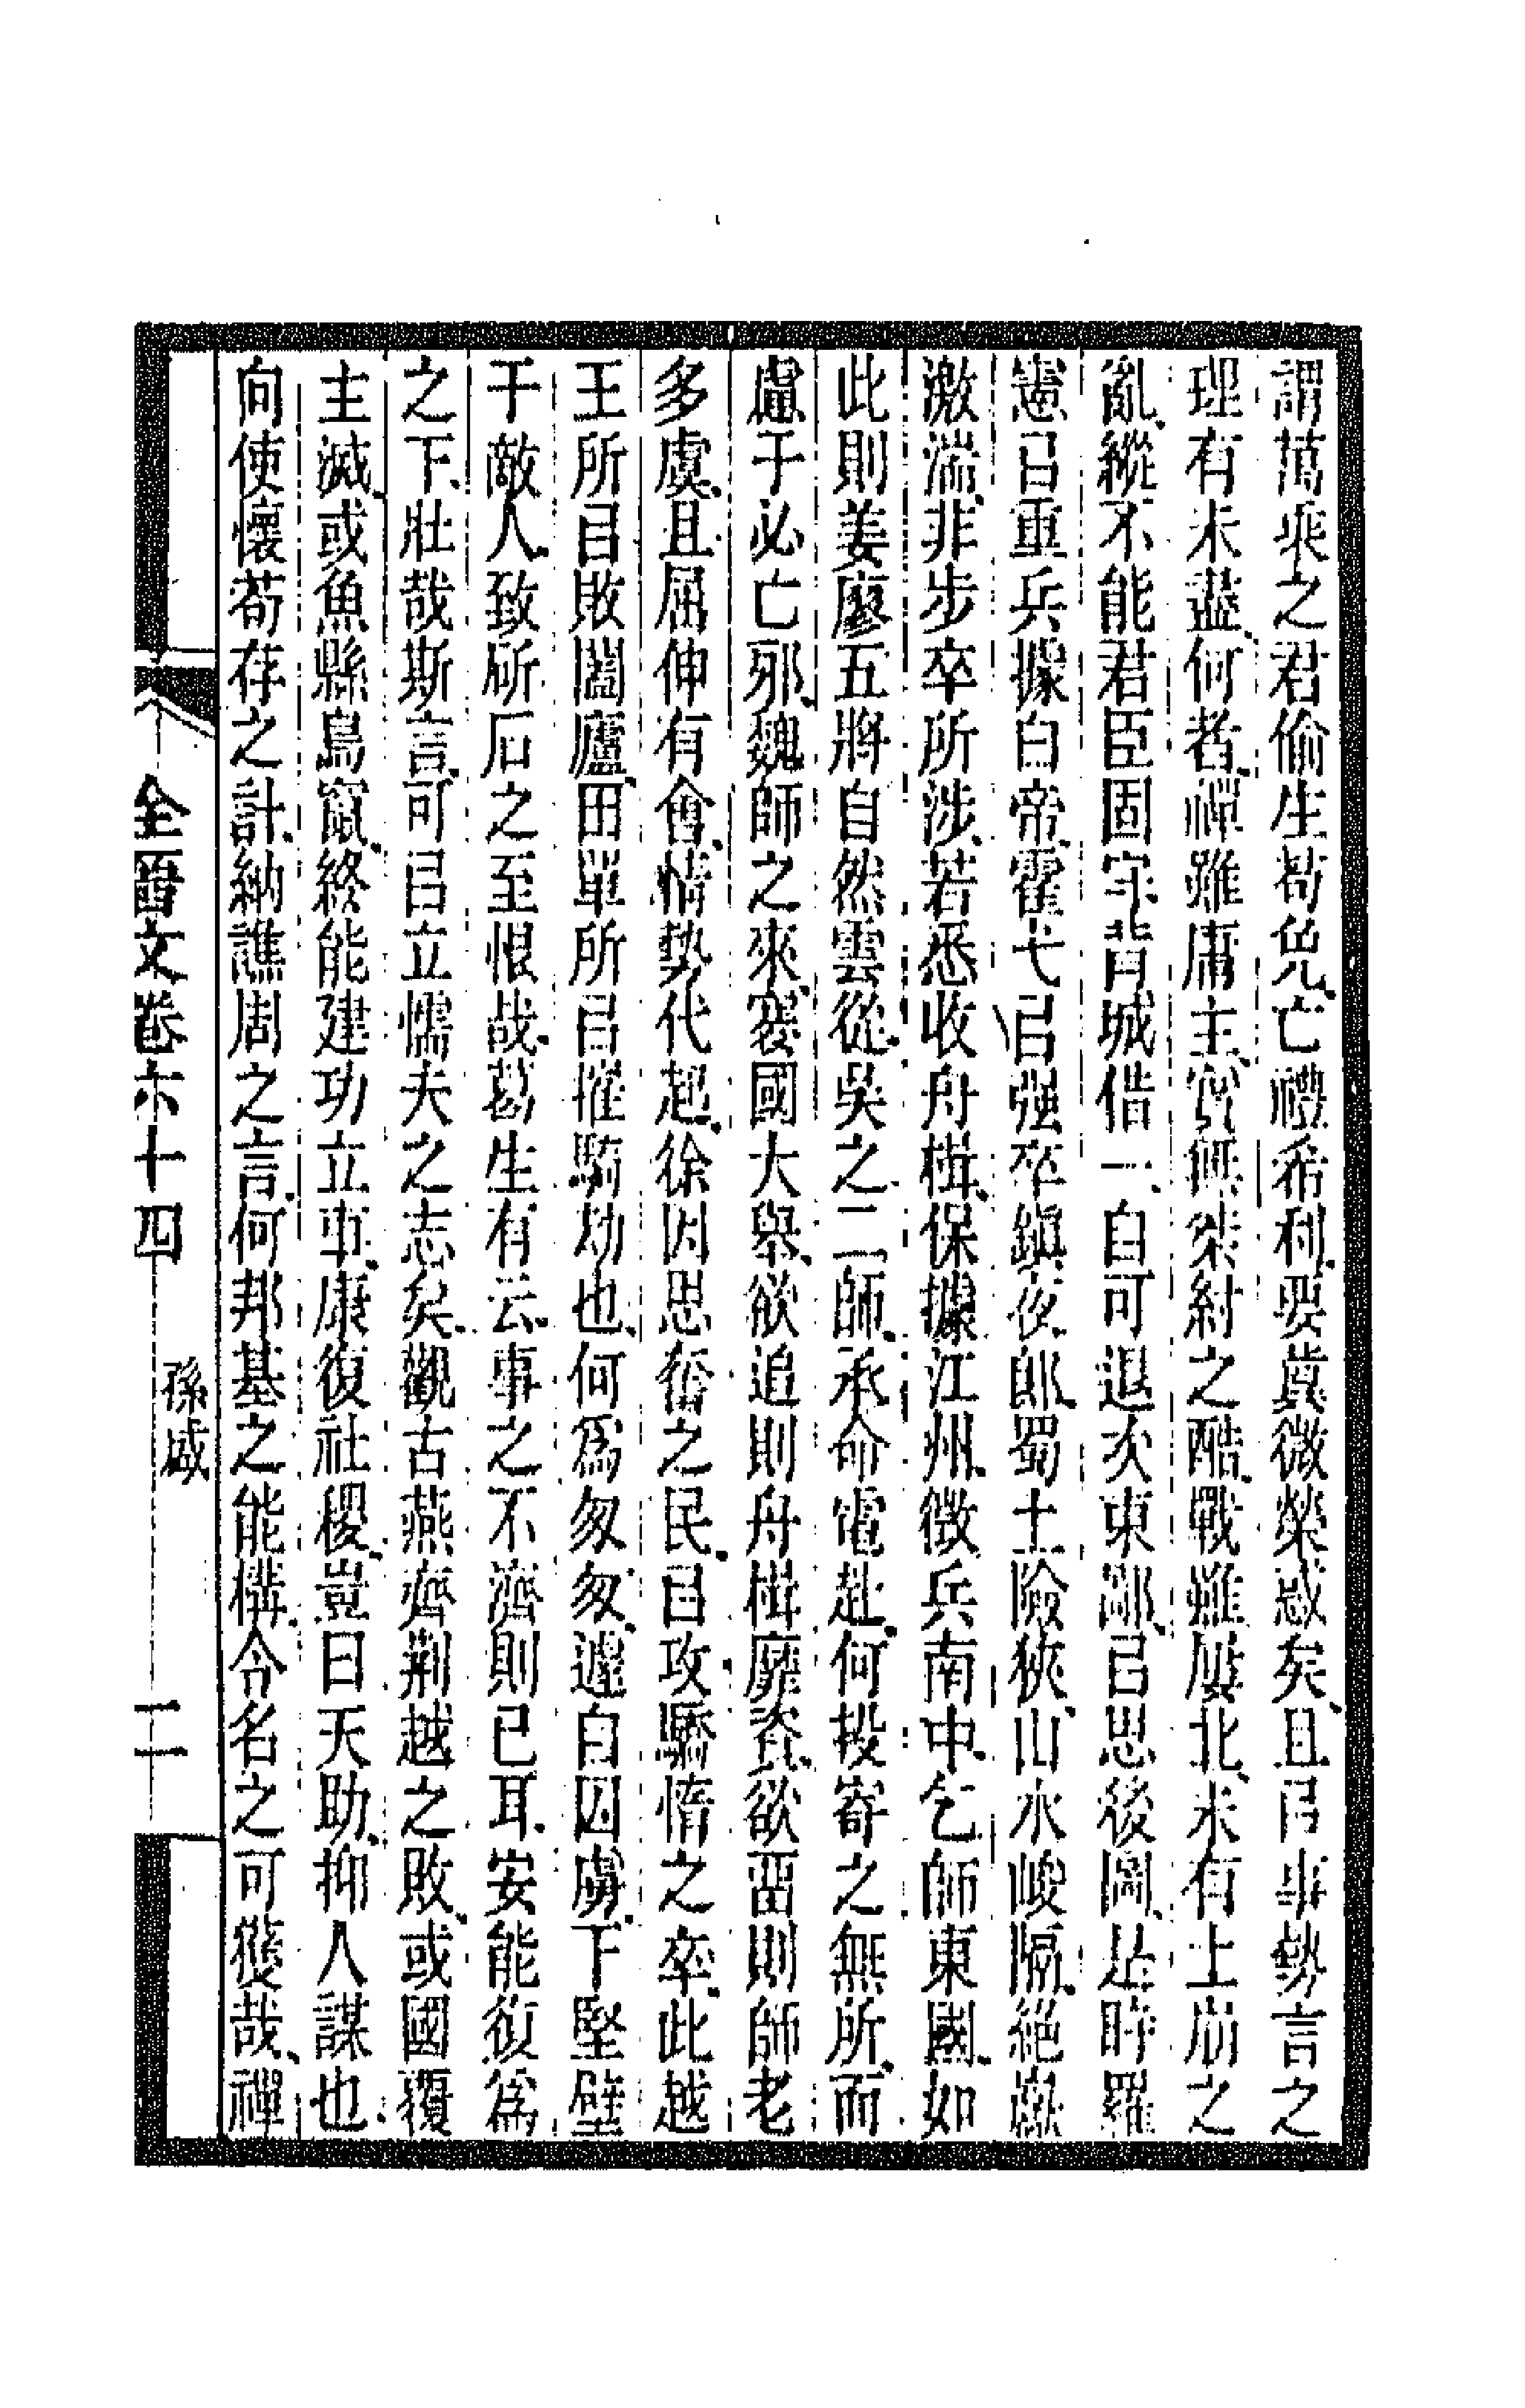 謂萬乘之君偷生苟免、亡禮希利、要冀微榮、惑矣、且㠯事勢言之
理有未盡、何者、禪雖庸主、實無桀紂之酷、戰雖屢北、未有土崩之
亂、縱不能君臣固守、背城借一、自可退次東鄙、㠯思後圖、是時羅
憲㠯重兵據白帝、霍弋㠯強卒鎮夜郎、蜀土險狹、山水峻隔、絕巘
激湍、非步卒所涉、若悉收舟楫、保據江州、徵兵南中、乞師東國、如
此則姜廖五將自然雲從、吳之二師、承命電赴、何投寄之無所、而
慮于必亡邪、魏師之來、褰國大舉、欲追則舟楫靡資、欲畱則師老
多虞、且屈伸有會、情勢代起、徐因思奮之民、㠯攻驕惰之卒、此越
王所㠯敗闔廬、田單所㠯摧騎劫也、何為匆匆、遽自囚虜、下堅壁
于敵人、致斫石之至恨哉、葛生有云、事之不濟則已耳、安能復為
之下、壯哉斯言、可㠯立懦夫之志矣、觀古燕齊荊越之敗、或國覆
主滅、或魚縣鳥竄、終能建功立事、康復社稷、豈曰天助、抑人謀也、
向使懷苟存之計、納譙周之言、何邦基之能構、令名之可獲哉、禪
全晉文卷六十四 孫盛 二